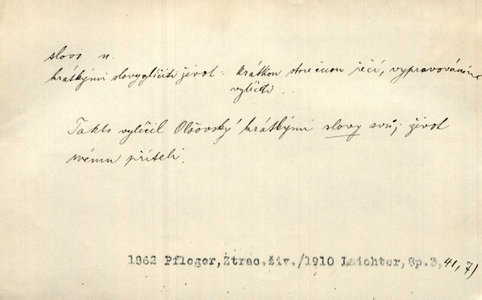 slovo n.
krátkými slovy vylíčiti život - krátkou stručnou řečí, vypravováním
vylíčiti.
Takto vylíčil Olšovský krátkými slovy svůj život
svému příteli.
1862 Pfleger, Ztrac.živ./1910 Laichter, Sp.3, 41, 71